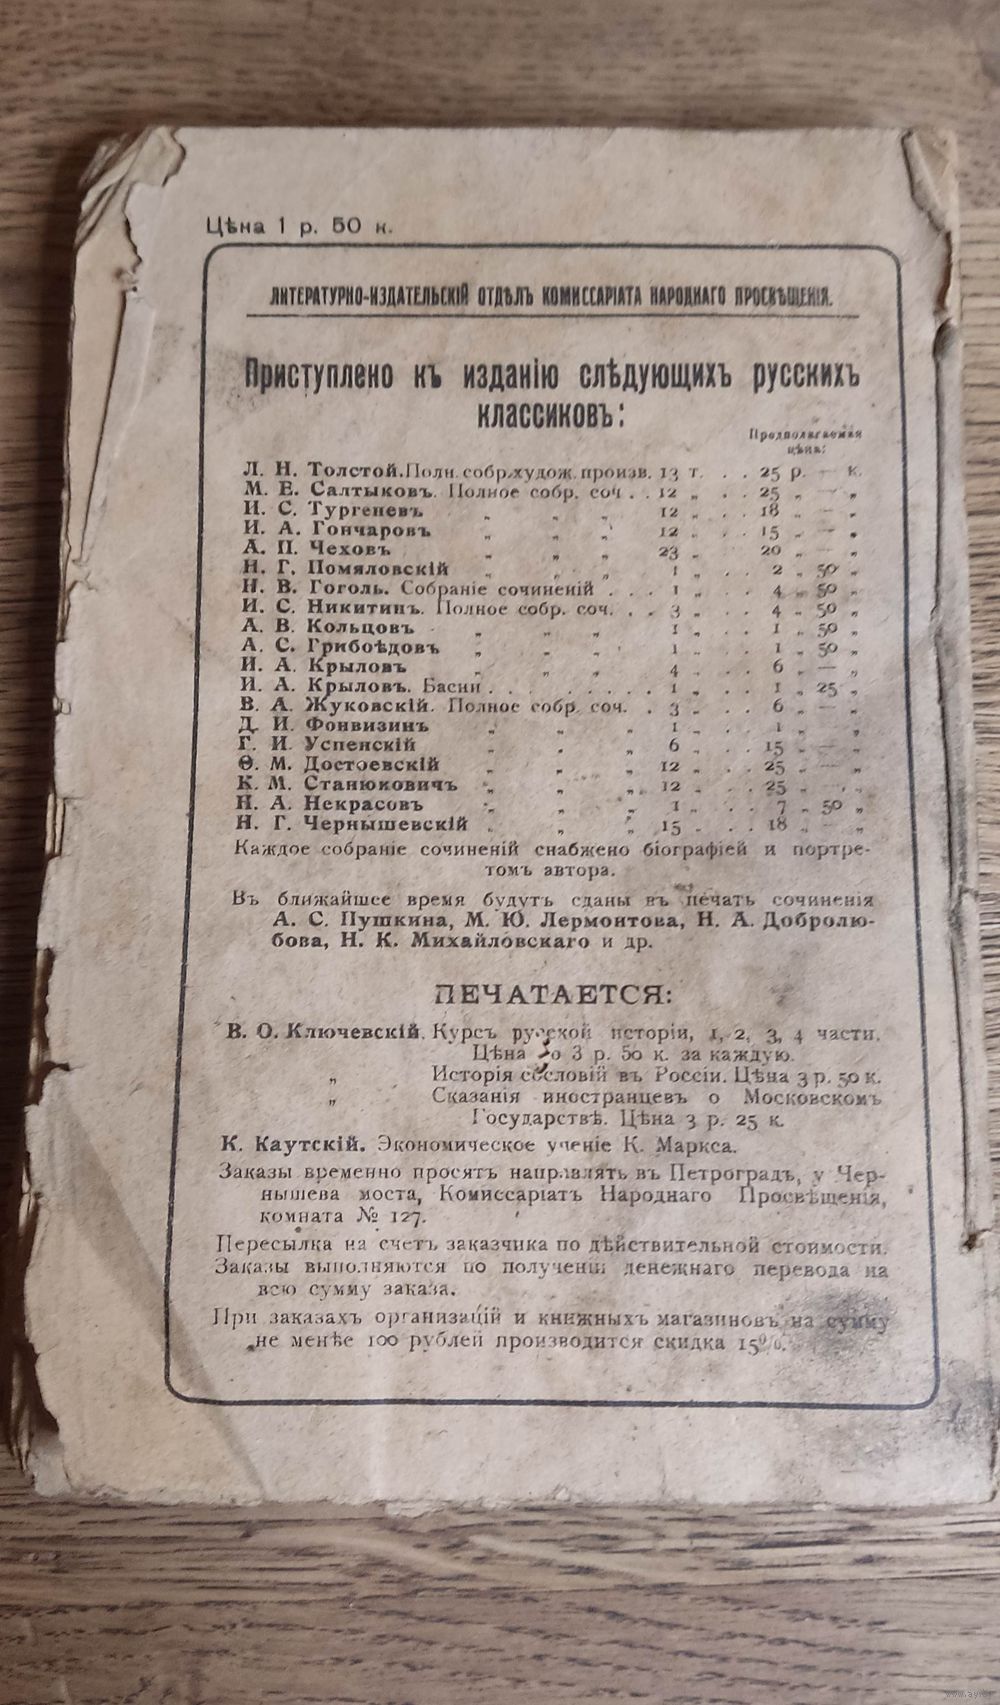 Цѣна 1 р. 50 к.
ЛИТЕРАТУРНО-ИЗДАТЕЛЬСКІЙ ОТДѢЛЪ КОМИССАРІАТА НАРОДНАГО ПРОСВѢЩЕНІЯ.
Приступлено къ изданію слѣдующихъ русскихъ
классиковъ:
Предполагаемая
цѣна:
Л. Н. Толстой. Полн. собр. худож. произв. 13 т. . . 25 р. — к.
М. Е. Салтыковъ. Полное собр. соч . . 12 „ . . 25 „ — „
И. С. Тургеневъ „ „ „ 12 „ . . 18 „ — „
И. А. Гончаровъ „ „ „ 12 „ . . 15 „ — „
А. П. Чеховъ „ „ „ 23 „ 20 „ — „
Н. Г. Помяловскій „ „ „ 1 „ . . 2 „ 50 „
Н. В. Гоголь. Собраніе сочиненій . . . 1 „ . . 4 „ 50 „
И. С. Никитинъ. Полное собр. соч. . . 3 „ . . 4 „ 50 „
А. В. Кольцовъ „ „ „ 1 „ . . 1 „ 50 „
А. С. Грибоѣдовъ „ „ „ 1 „ . . 1 „ 50 „
И. А. Крыловъ „ „ „ 4 „ . . 6 „ — „
И. А. Крыловъ. Басни . . . . . . . . 1 „ . . 1 „ 25 „
В. А. Жуковскій. Полное собр. соч. . 3 „ . . 6 „ — „
Д. И. Фонвизинъ „ „ „ 1 „ . . 1 „ „
Г. И. Успенскій „ „ „ 6 „ . . 15 „ — „
Ѳ. М. Достоевскій „ „ „ 12 „ . . 25 „ — „
К. М. Станюковичъ „ „ „ 12 „ . . 25 „ — „
Н. А. Некрасовъ „ „ „ 1 „ . . 7 „ 50 „
Н. Г. Чернышевскій „ „ „ 15 „ . . 18 „ — „
Каждое собраніе сочиненій снабжено біографіей и портре-
томъ автора.
Въ ближайшее время будутъ сданы въ печать сочиненія
А. С. Пушкина, М. Ю. Лермонтова, Н. А. Добролю-
бова, Н. К. Михайловскаго и др.
ПЕЧАТАЕТСЯ:
В. О. Ключевскій. Курсъ русской исторіи, 1, 2, 3, 4 части.
Цѣна по 3 р. 50 к. за каждую.
„ Исторія сословій въ Россіи. Цѣна 3 р. 50 к.
„ Сказанія иностранцевъ о Московскомъ
Государствѣ. Цѣна 3 р. 25 к.
К. Каутскій. Экономическое ученіе К. Маркса.
Заказы временно просятъ направлять въ Петроградъ, у Чер-
нышева моста, Комиссаріатъ Народнаго Просвѣщенія,
комната № 127.
Пересылка на счетъ заказчика по дѣйствительной стоимости.
Заказы выполняются по полученіи денежнаго перевода на
всю сумму заказа.
При заказахъ организацій и книжныхъ магазиновъ на сумму
не менѣе 100 рублей производится скидка 15%.